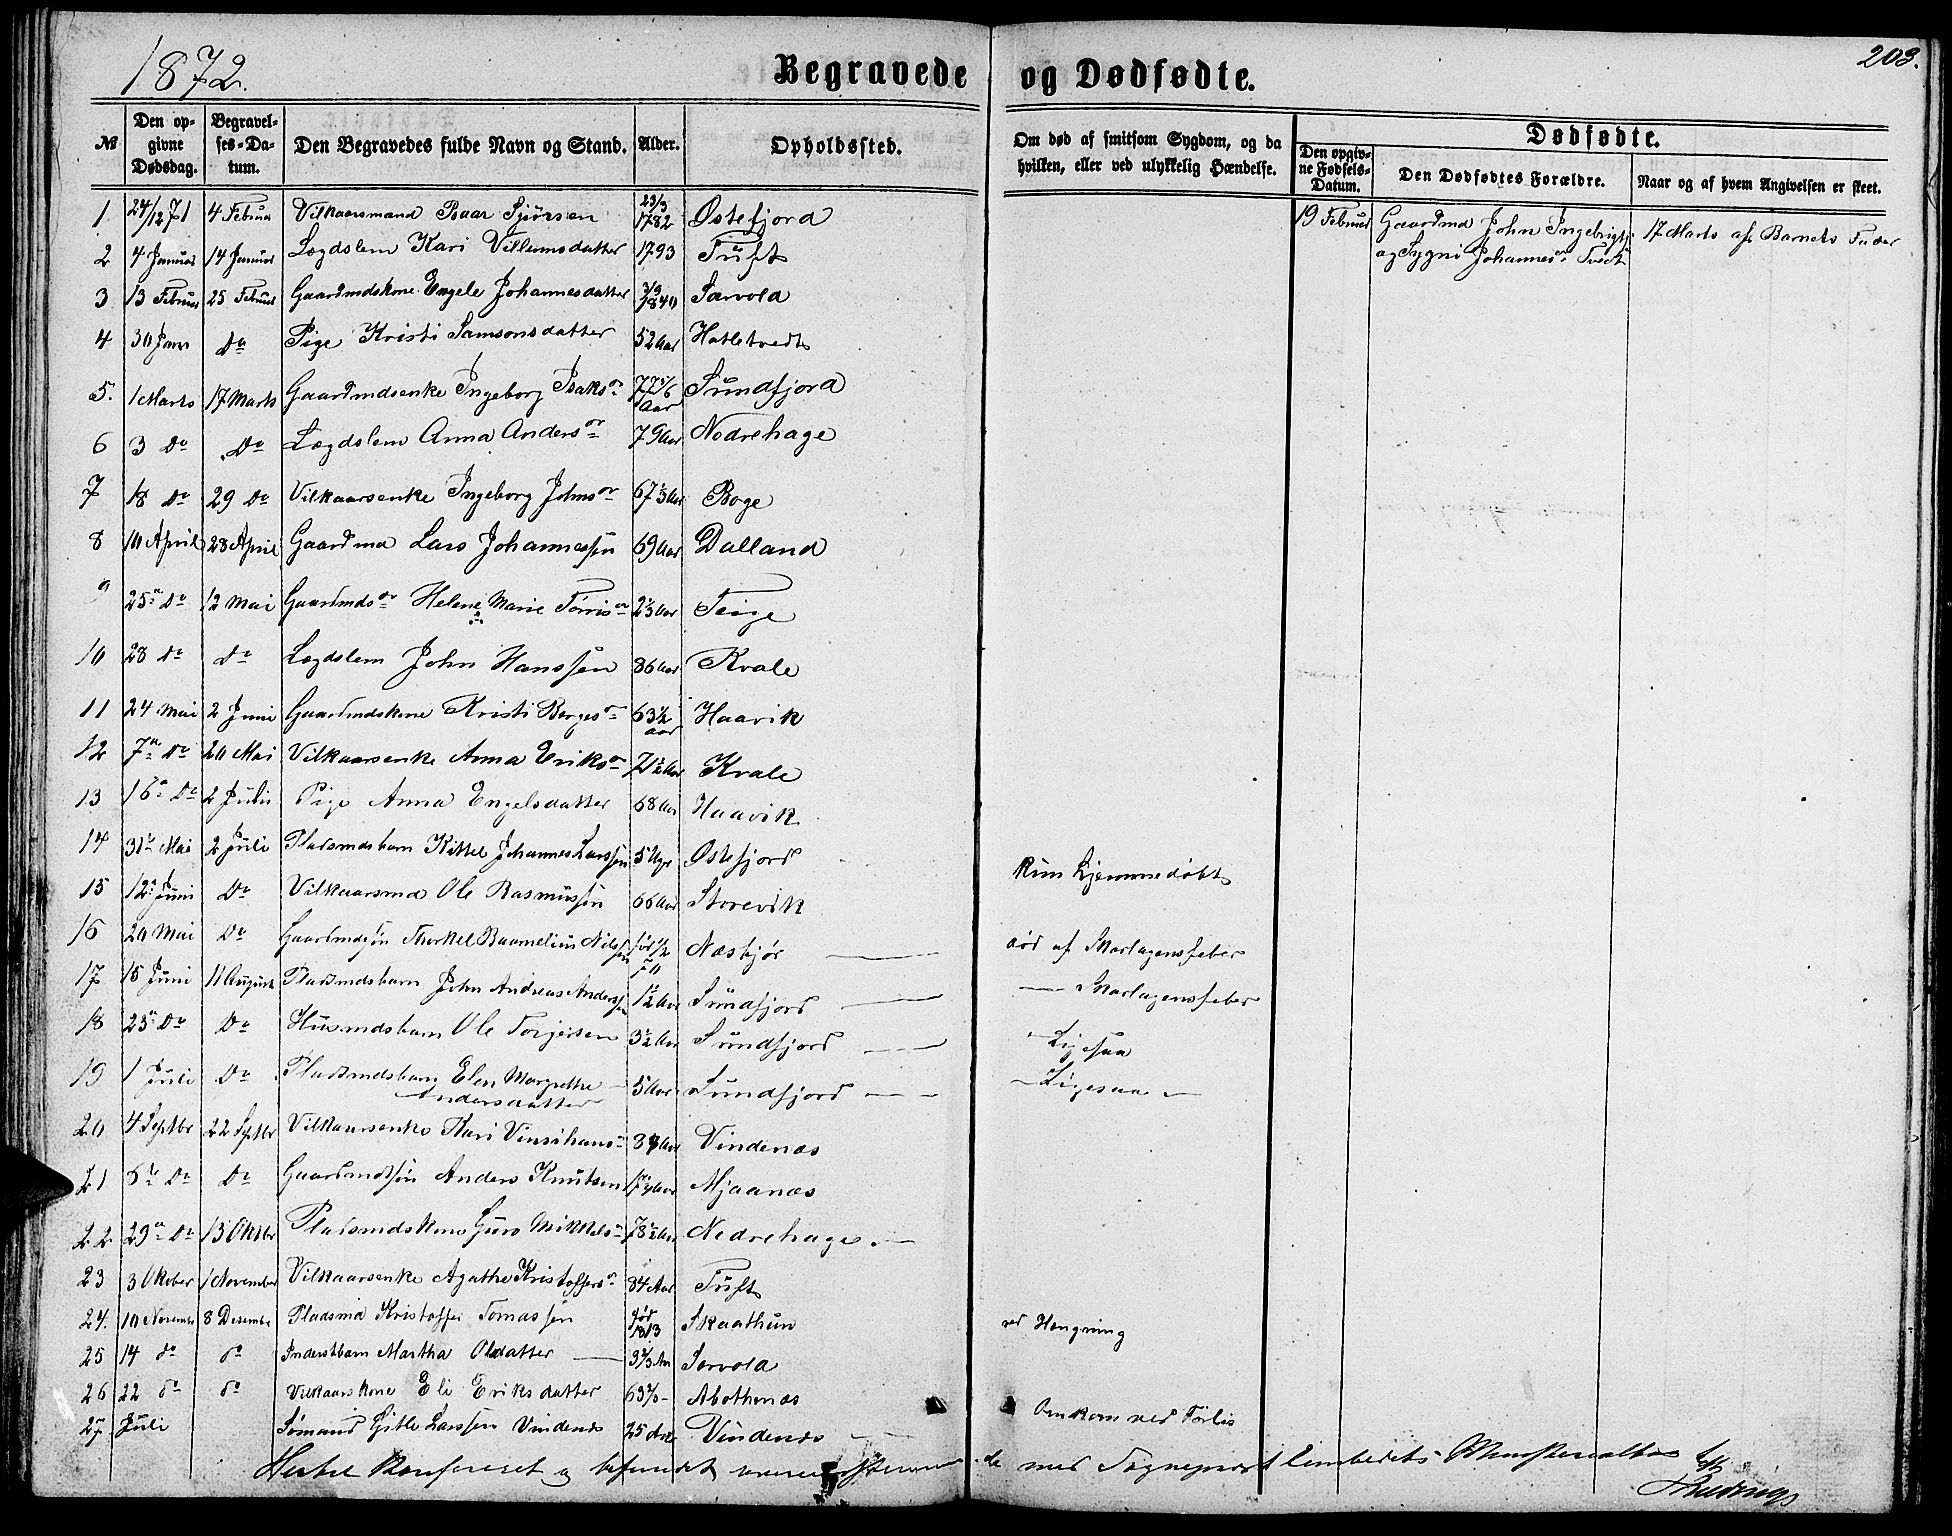 1872.
Begravede og Dødfødte.
203.
№
Den opgivne Dødsdag.
Begravelses-Datum.
Den Begravedes fulde Navn og Stand.
Alder.
Opholdssted.
Om død af smitsom Sygdom, og da hvilken, eller ved ulykkelig Hændelse.
Dødfødte.
Den opgivne Fødsels-Datum.
Den Dødfødtes Forældre.
Naar og af hvem Angivelsen er skeet.
1 24/12 71 4 Februar Vilkaarsmand Isaar Sjursen 23/3 1782 Østefjord
19 Februar Gaardmd John Ingebrigts 17 Marts af Barnets Fader
og Sygni Johannesdr Tvedt
2 4 Januar 14 Januar Lægdslem Kari Villumsdatter 1793 Tuft
3 13 Februar 25 Februar Gaardmdskone Engele Johannesdatter 1840 Særvold
4 30 Janr Do Pige Kristi Samsonsdatter 52 Aar Hatletvedt
5. 1 Marts 17 Marts Gaardmdsenke Ingeborg Isaksdr 77 Aar Sundfjord
6 3 Do Do Lægdslem Anna Andersdr 79 Aar Nedrehage
7 18 Do 29 Do Vilkaarsenke Ingeborg Johnsdr 67 1/3 Aar Boge
8 10 April 28 April Gaardmd Lars Johannessen 69 Aar Dalland
9 25de Do 12 Mai Gaardmdsdr Helene Marie Tørrisdr 2 1/3 Aar Teige
10 28 Do Do Lægdslem John Hanssen 86 Aar Kvale
11 24 Mai 2 Juni Gaardmdskone Kristi Børgesdr 63 1/2 aar Haavik
12 7de Do 20 Mai Vilkaarsenke Anna Eriksdr 71 1/2 Aar Kvale
13 16de Do 2 Julii Pige Anna Engelsdatter 68 Aar Haavik
14 31te Mai 2 Juli Pladsmdsbarn Kittel Johannes Larssen 5 Uger Østefjord Kun hjemmedøbt
15 12te Juni Do Vilkaarsmd Ole Rasmussen 66 Aar Storevik
16 20 Mai Do Gaardmdsøn Thorkel Baarnelius Nilssen fød 1/2 70 Næsbjør død af Skarlagensfeber
17 15 Juni 11 August Pladsmdsbarn John Andreas Anderssen 1 1/2 Aar Sundfjord Skarlagensfeber
18 23de Do Do Husmdsbarn Ole Torgersen 3 1/2 Aar Sundfjord Ligesaa
19 1 Juli Do Pladsmdsbarn Elen Margrethe Andersdatter 5 Aar Sundfjord Ligesaa
20 4 Septbr 22 Septbr Vilkaarsenke Kari 84 Aar Vindenæs
21 6te Do Do Gaardmdsøn Anders Knutsen 17 Aar Mjaanæs
22 29de Do 13 Oktbr Pladsmdskone Guro Mikkelsdr 78 1/2 Aar Nedrehage
23 3 Oktober 1 November Vilkaarsenke Agathe Kristoffersdr 84 Aar Tuft
24. 10 Novembr 8 Desembr Pladsmd Kristoffer Tomassen fød 1813 Skaathun ved Hængning
25 14 do do Inderstbarn Martha Olsdatter 3 2/3 Aar Særvold
26 22 do do Vilkaarskone Eli Eriksdatter 63 Abothenæs
27 Juli Sømand Gitle Larssen Vindenæs 25 Aar Vindenæs Omkom ved Forlis
Hertil Konfereret og befundet overensstemmende med Sogneprestembedets Ministerialbog